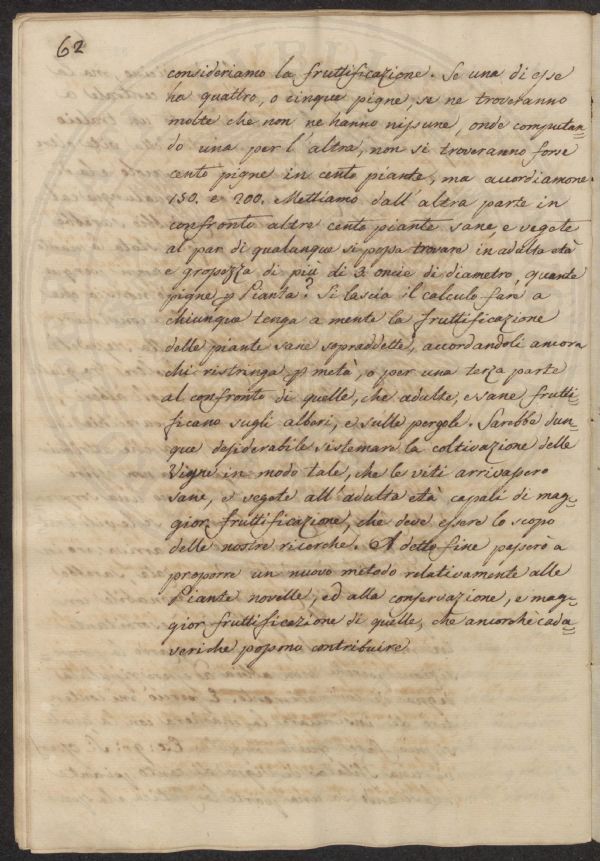 62
consideriamo la fruttificazione. Se una di esse
ha quattro, o cinque pigne, se ne troveranno
molte che non ne hanno nissune, onde computan=
do una per l'altra, non si troveranno forse
cento pigne in cento piante, ma accordiamone
150. e 200. Mettiamo dall'altra parte in
confronto altre cento piante sane, e vegete
al par di qualunque si possa trovare in adulta età
e grossezza di più di 3 oncie di diametro, quante
pigne p Pianta? Si lascia il calcolo fare a
chiunque tenga a mente la fruttificazione
delle piante sane sopraddette, accordandoli ancora
chi ristringa p metà, o per una terza parte
al confronto di quelle, che adulte, e sane frutti=
ficano sugli alberi, e sulle pergole. Sarebbe dun=
que desiderabile sistemare la coltivazione delle
Vigne in modo tale, che le viti arrivassero
sane, e vegete all'adulta età capaci di mag=
gior fruttificazione, che deve essere lo scopo
delle nostre ricerche. A detto fine passerò a
proporre un nuovo metodo relativamente alle
Piante novelle, ed alla conservazione, e mag=
gior fruttificazione di quelle, che ancorchè cada=
veriche possono contribuire